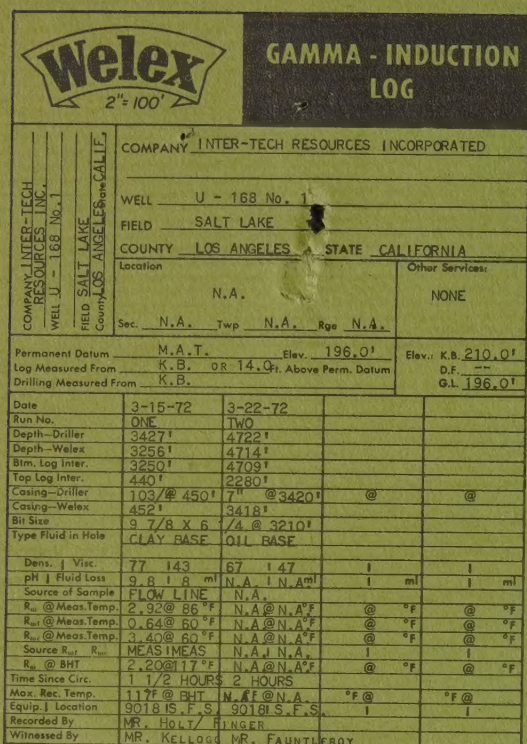 Welex
2"= 100'
GAMMA - INDUCTION
LOG
COMPANY INTER-TECH RESOURCES INC.
WELL U - 168 No.1
FIELD SALT LAKE
County LOS ANGELES State CALIF.
COMPANY INTER-TECH RESOURCES INCORPORATED
WELL U - 168 No. 1
FIELD SALT LAKE
COUNTY LOS ANGELES STATE CALIFORNIA
Location
Other Services:
N.A.
NONE
Sec. N.A. Twp N.A. Rge N.A.
Permanent Datum M.A.T. Elev. 196.0' Elev.: K.B. 210.0'
Log Measured From K.B. OR 14.0 Ft. Above Perm. Datum D.F. --
Drilling Measured From K.B. G.L. 196.0'
Date 3-15-72 3-22-72
Run No. ONE TWO
Depth—Driller 3427' 4722'
Depth—Welex 3256' 4714'
Btm. Log Inter. 3250' 4709'
Top Log Inter. 440' 2280'
Casing—Driller 103/4 @ 450' 7" @3420' @ @
Casing—Welex 452' 3418'
Bit Size 9 7/8 X 6 1/4 @ 3210'
Type Fluid in Hole CLAY BASE OIL BASE
Dens. | Visc. 77 143 67 147 | |
pH | Fluid Loss 9.8 | 8 ml N.A. | N.A ml | ml | ml
Source of Sample FLOW LINE N.A.
Rm @ Meas.Temp. 2.92@ 86 °F N.A@N.A°F @ °F @ °F
Rmf @ Meas.Temp. 0.64@ 60 °F N.A@N.A°F @ °F @ °F
Rmc @ Meas.Temp. 3.40@ 60 °F N.A@N.A°F @ °F @ °F
Source Rmf Rmc MEAS|MEAS N.A.| N.A. | |
Rm @ BHT 2.20@117 °F N.A@N.A°F @ °F @ °F
Time Since Circ. 1 1/2 HOURS 2 HOURS
Max. Rec. Temp. 117°F @ BHT N.A°F @N.A. °F @ °F @
Equip. | Location 9018 |S.F.S. 9018|S.F.S. | |
Recorded By MR. HOLT/ FINGER
Witnessed By MR. KELLOGG MR. FAUNTLEROY